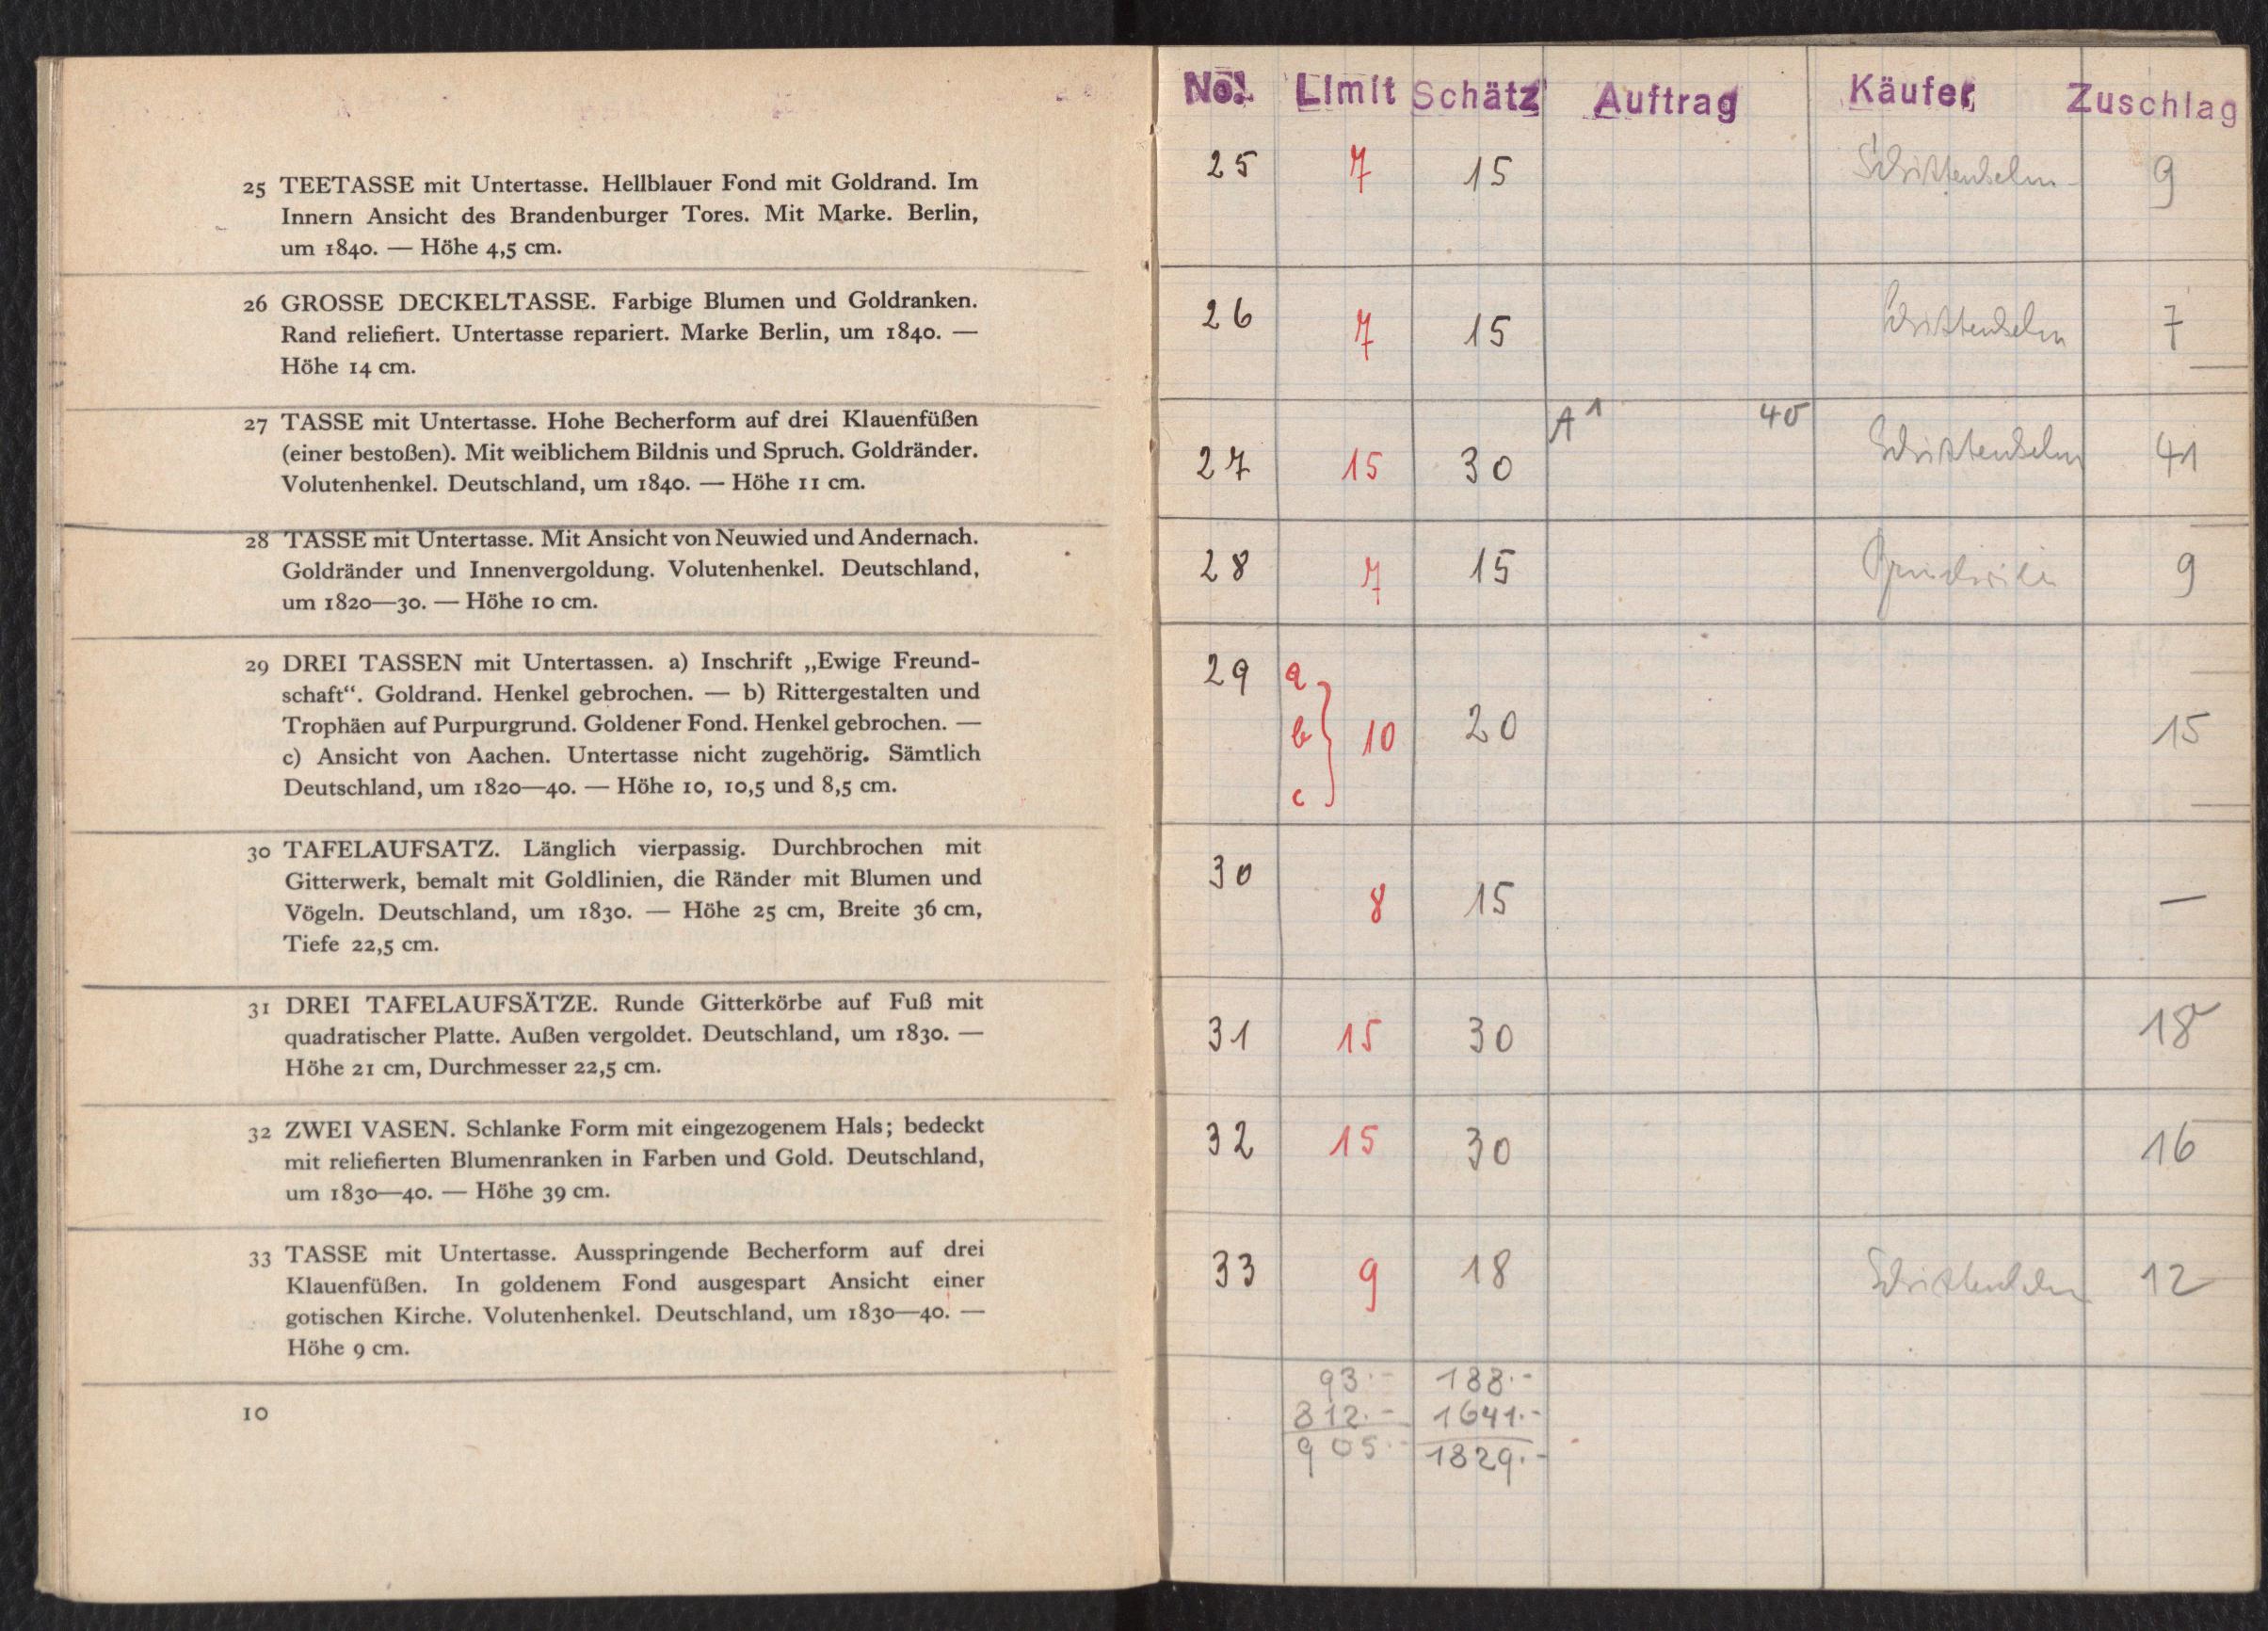 25 TEETASSE mit Untertasse. Hellblauer Fond mit Goldrand. Im
Innern Ansicht des Brandenburger Tores. Mit Marke. Berlin,
um 1840. — Höhe 4,5 cm.
26 GROSSE DECKELTASSE. Farbige Blumen und Goldranken.
Rand reliefiert. Untertasse repariert. Marke Berlin, um 1840. —
Höhe 14 cm.
27 TASSE mit Untertasse. Hohe Becherform auf drei Klauenfüßen
(einer bestoßen). Mit weiblichem Bildnis und Spruch. Goldränder.
Volutenhenkel. Deutschland, um 1840. — Höhe 11 cm.
28 TASSE mit Untertasse. Mit Ansicht von Neuwied und Andernach.
Goldränder und Innenvergoldung. Volutenhenkel. Deutschland,
um 1820—30. — Höhe 10 cm.
29 DREI TASSEN mit Untertassen. a) Inschrift „Ewige Freund-
schaft“. Goldrand. Henkel gebrochen. — b) Rittergestalten und
Trophäen auf Purpurgrund. Goldener Fond. Henkel gebrochen. —
c) Ansicht von Aachen. Untertasse nicht zugehörig. Sämtlich
Deutschland, um 1820—40. — Höhe 10, 10,5 und 8,5 cm.
30 TAFELAUFSATZ. Länglich vierpassig. Durchbrochen mit
Gitterwerk, bemalt mit Goldlinien, die Ränder mit Blumen und
Vögeln. Deutschland, um 1830. — Höhe 25 cm, Breite 36 cm,
Tiefe 22,5 cm.
31 DREI TAFELAUFSÄTZE. Runde Gitterkörbe auf Fuß mit
quadratischer Platte. Außen vergoldet. Deutschland, um 1830. —
Höhe 21 cm, Durchmesser 22,5 cm.
32 ZWEI VASEN. Schlanke Form mit eingezogenem Hals; bedeckt
mit reliefierten Blumenranken in Farben und Gold. Deutschland,
um 1830—40. — Höhe 39 cm.
33 TASSE mit Untertasse. Ausspringende Becherform auf drei
Klauenfüßen. In goldenem Fond ausgespart Ansicht einer
gotischen Kirche. Volutenhenkel. Deutschland, um 1830—40. —
Höhe 9 cm.
10
No. Limit Schätz Auftrag Käufer Zuschlag
25 7 15 9
26 7 15 7
A 1 40
27 15 30 41
28 7 15 9
29 a
b 10 20 15
c
30 8 15 —
31 15 30 18
32 15 30 16
33 9 18 12
93.- 188.-
812.- 1641.-
905.- 1829.-